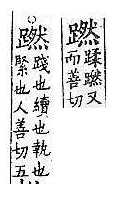 蹨
蹂蹨又
而善切
蹨
踐也續也執也
緊也人善切五